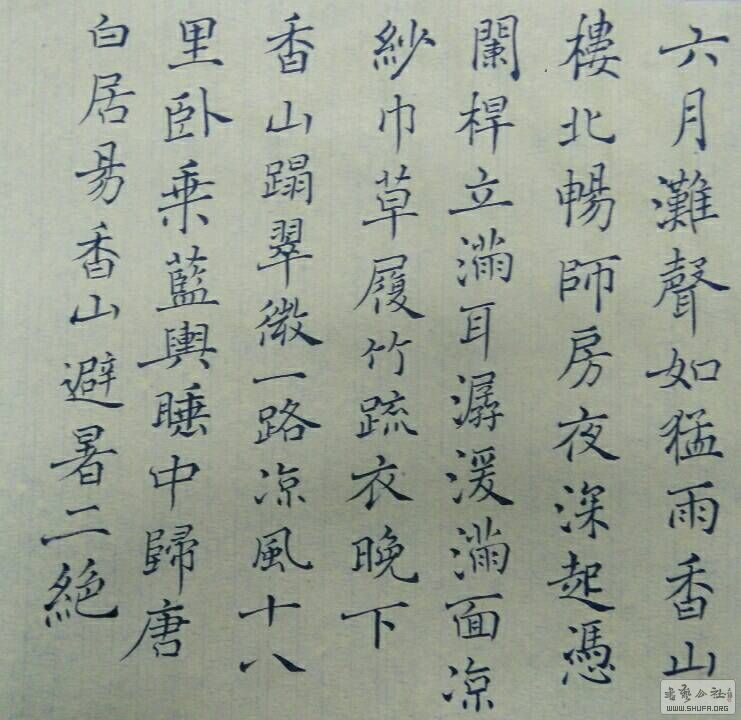 六月灘聲如猛雨香山
樓北暢師房夜深起憑
闌桿立滿耳潺湲滿面凉
紗巾草履竹疏衣晚下
香山蹋翠微一路凉風十八
里卧乗藍輿睡中歸唐
白居易香山避暑二絶
書藝公社
WWW.SHUFA.ORG